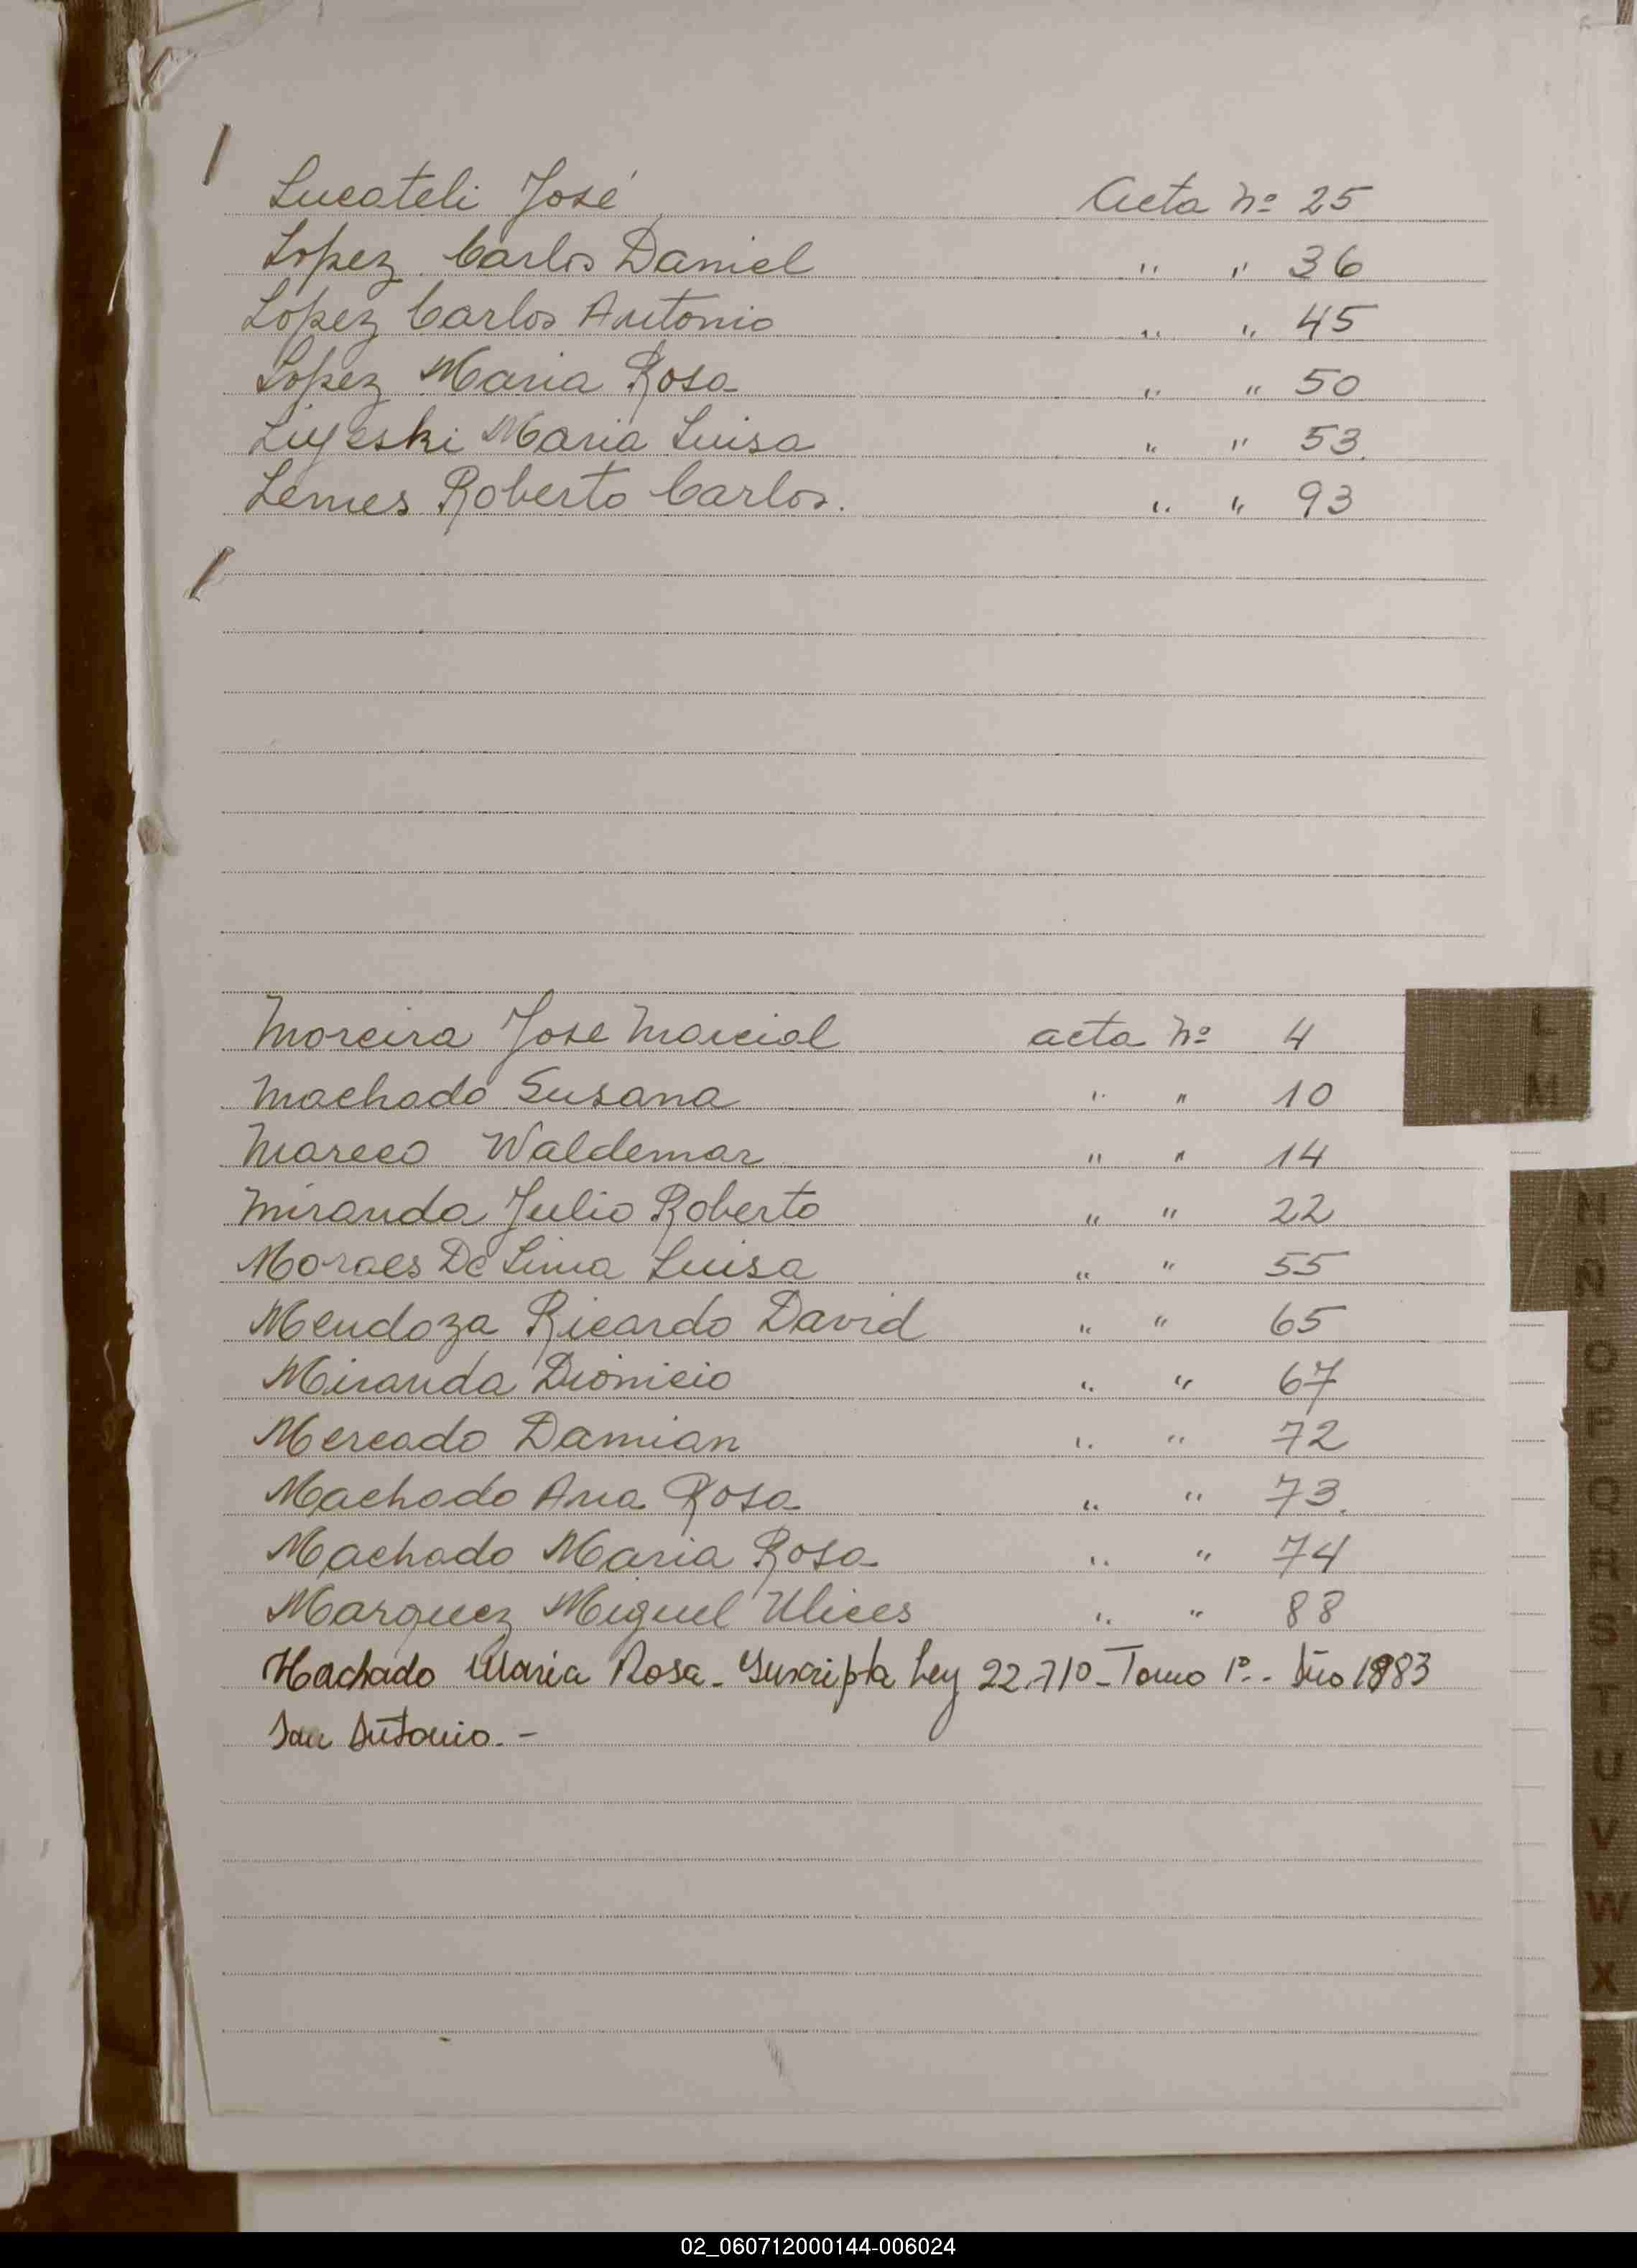 Lucateli José Acta Nº 25
Lopez Carlos Daniel " " 36
Lopez Carlos Antonio " " 45
Lopez Maria Rosa " " 50
Maria Luisa " " 53.
Lemes Roberto Carlos. " " 93
Moreira Jose Marcial acta Nº 4
L
Machado Susana " " 10
M
Mareco Waldemar " " 14
Miranda Julio Roberto " " 22
M
Moraes De Lima Luisa " " 55
N
Mendoza Ricardo David " " 65
Miranda Dionicio " " 67
O
Mercado Damian " " 72
P
Machado Ana Rosa " " 73.
Q
Machado Maria Rosa " " 74
R
Marquez Miguel Ulices " " 88
S
Machado Maria Rosa - Inscripta Ley 22.710 - Tomo 1º. - Año 1983
T
San Antonio. -
U
V
W
X
Z
02_060712000144-006024